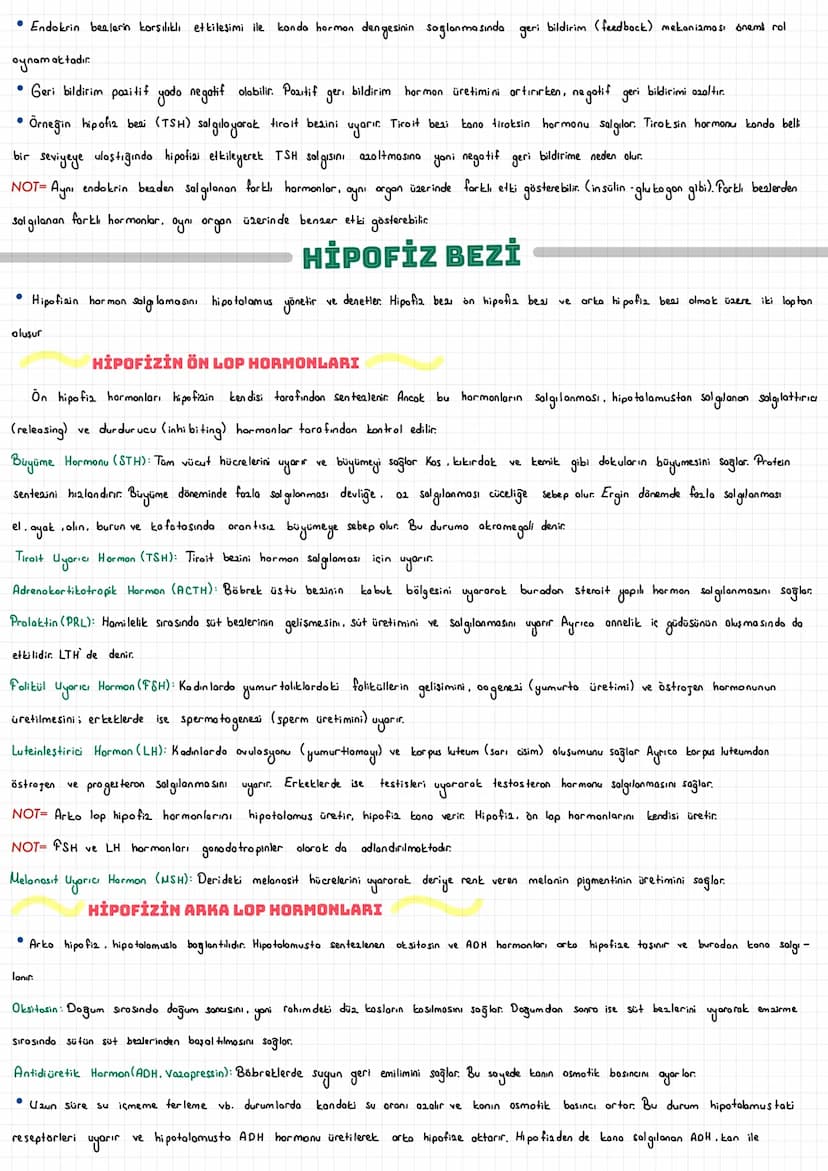 • Endokrin bezlerin karşılıklı etkileşimi ile kanda hormon dengesinin sağlanmasında geri bildirim (feedback) mekanizması önemli rol
oynamaktadır.
• Geri bildirim pozitif yada negatif olabilir. Pozitif geri bildirim hormon üretimini artırırken, negatif geri bildirimi azaltır.
• Örneğin hipofiz bezi (TSH) salgılayarak tiroit bezini uyarır. Tiroit bezi kana tiroksin hormonu salgılar. Tiroksin hormonu kanda belli
bir seviyeye ulaştığında hipofizi etkileyerek TSH salgısını azaltmasına yani negatif geri bildirime neden olur.
NOT= Aynı endokrin bezden salgılanan farklı hormonlar, aynı organ üzerinde farklı etki gösterebilir. (insülin - glukagon gibi). Farklı bezlerden
salgılanan farklı hormonlar, aynı organ üzerinde benzer etki gösterebilir.
HİPOFİZ BEZİ
• Hipofizin hormon salgılamasını hipotalamus yönetir ve denetler. Hipofiz bezi ön hipofiz bezi ve arka hipofiz bezi olmak üzere iki loptan
oluşur
HİPOFİZİN ÖN LOP HORMONLARI
Ön hipofiz hormonları hipofizin kendisi tarafından sentezlenir. Ancak bu hormonların salgılanması, hipotalamustan salgılanan salgılattırıcı
(releasing) ve durdurucu (inhibiting) hormonlar tarafından kontrol edilir.
Büyüme Hormonu (STH): Tüm vücut hücrelerini uyarır ve büyümeyi sağlar. Kas, kıkırdak ve kemik gibi dokuların büyümesini sağlar. Protein
sentezini hızlandırır. Büyüme döneminde fazla salgılanması devliğe, az salgılanması cüceliğe sebep olur. Ergin dönemde fazla salgılanması
el, ayak, alın, burun ve kafatasında orantısız büyümeye sebep olur. Bu duruma akromegali denir.
Tiroit Uyarıcı Hormon (TSH): Tiroit bezini hormon salgılaması için uyarır.
Adrenokortikotropik Hormon (ACTH): Böbrek üstü bezinin kabuk bölgesini uyararak buradan steroit yapılı hormon salgılanmasını sağlar.
Prolaktin (PRL): Hamilelik sırasında süt bezlerinin gelişmesini, süt üretimini ve salgılanmasını uyarır Ayrıca annelik iç güdüsünün oluşmasında da
etkilidir. LTH' de denir.
Folikül Uyarıcı Hormon (FSH): Kadınlarda yumurtalıklardaki foliküllerin gelişimini, oogenezi (yumurta üretimi) ve östrojen hormonunun
üretilmesini; erkeklerde ise spermatogenezi (sperm üretimini) uyarır.
Luteinleştirici Hormon (LH): Kadınlarda ovulasyonu (yumurtlamayı) ve korpus luteum (sarı cisim) oluşumunu sağlar Ayrıca korpus luteumdan
östrojen ve progesteron salgılanmasını uyarır. Erkeklerde ise testisleri uyararak testosteron hormonu salgılanmasını sağlar.
NOT= Arka lop hipofiz hormonlarını hipotalamus üretir, hipofiz kana verir. Hipofiz, ön lop hormonlarını kendisi üretir.
NOT= FSH ve LH hormonları gonodotropinler olarak da adlandırılmaktadır.
Melanosit Uyarıcı Hormon (MSH): Derideki melanosit hücrelerini uyararak deriye renk veren melanin pigmentinin üretimini sağlar.
HİPOFİZİN ARKA LOP HORMONLARI
• Arka hipofiz, hipotalamusla bağlantılıdır. Hipotalamusta sentezlenen oksitosin ve ADH hormonları arka hipofize taşınır ve buradan kana salgı-
lanır.
Oksitosin: Doğum sırasında doğum sancısını, yani rahimdeki düz kasların kasılmasını sağlar. Doğumdan sonra ise süt bezlerini uyararak emzirme
sırasında sütün süt bezlerinden boşaltılmasını sağlar.
Antidiüretik Hormon(ADH, Vazopressin): Böbreklerde suyun geri emilimini sağlar. Bu sayede kanın osmotik basıncını ayarlar.
• Uzun süre su içmeme terleme vb. durumlarda kandaki su oranı azalır ve kanın osmotik basıncı artar. Bu durum hipotalamustaki
reseptörleri uyarır ve hipotalamusta ADH hormonu üretilerek arka hipofize aktarır. Hipofizden de kana salgılanan ADH, kan ile